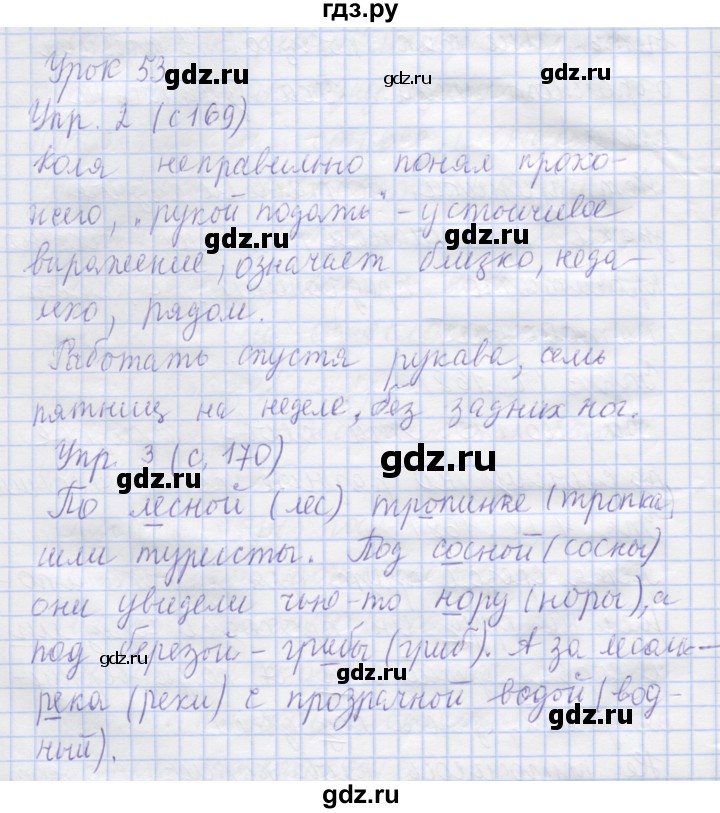 гдз.ру
Урок 53
gdz.ru
gdz.ru
gdz.ru
Упр. 2 (с 169)
Коля неправильно понял прохо-
жего, „рукой подать" - устойчивое
gdz.ru
gdz.ru
выражение, означает близко, неда-
леко, рядом.
gdz.ru
gdz.ru
Работать спустя рукава, семь
пятниц на неделе, без задних ног.
Упр. 3 (с. 170)
gdz.ru
gdz.ru
По лесной (лес) тропинке (тропка)
шли туристы. Под сосной (сосны)
gdz.ru
gdz.ru
они увидели чью-то нору (норы), а
под березой - грибы (гриб). А за лесом -
gdz.ru
gdz.ru
река (реки) с прозрачной водой (вод-
gdz.ru
ный).
gdz.ru